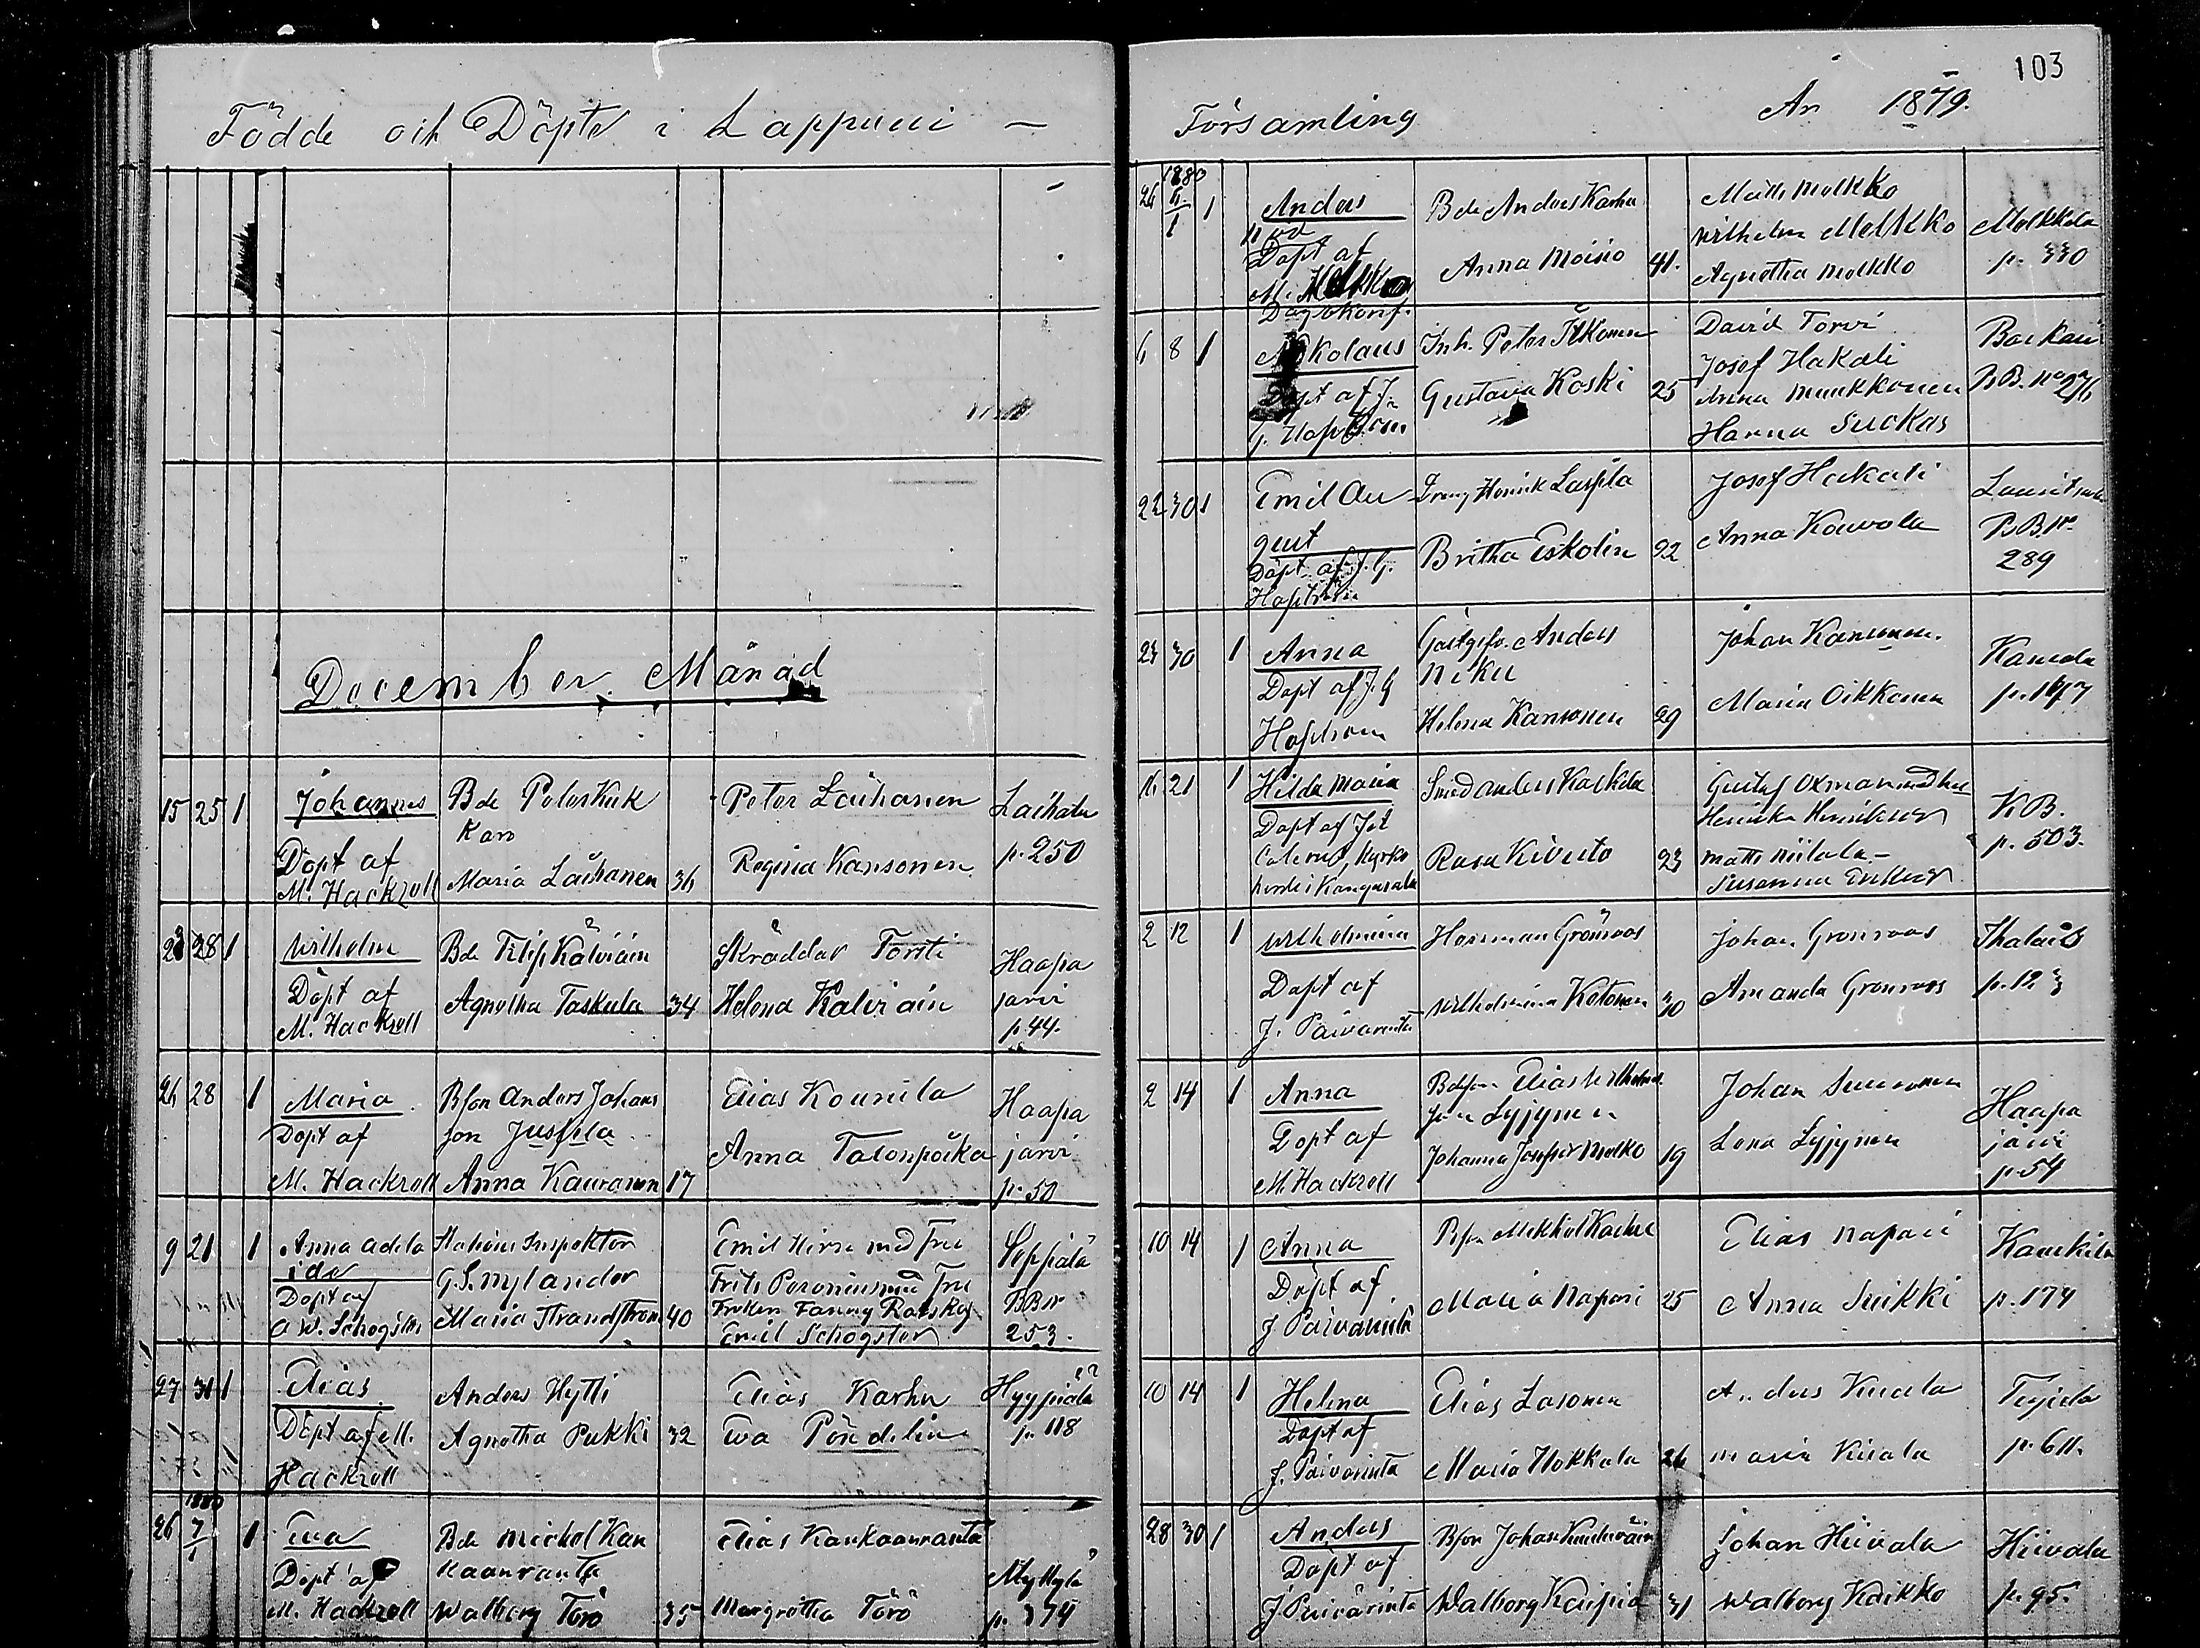 Födde och Döpte i Lappvesi —
December Månad
15 25 1 Johannes
Döpt af
M. Hackzell
Bde Peter Kuk
karo
Maria Läihanen 36
Peter Läihanen
Regina Kansonen
Laihala
p. 250
23 28 1 Wilhelm
Döpt af
M. Hackzell
Bde Filip Kälviäin
Agnetha Taskula 34
Skräddar Torsti
Helena Kälviäin
Haapa
järvi
p. 44.
26 28 1 Maria
Döpt af
M. Hackzell
Bson Anders Johans
son Jussila
Anna Kauranen 17
Elias Kounila
Anna Talonpoika
Haapa
järvi
p. 50
9 21 1 Anna Adela
Ida
Döpt af
Stations Inspektor
G. S. Nylander
Maria Strandström 40
Emil Hirn med Fru
Fröken Fanny
Emil Schogster
Seppälä
PB nr
253.
27 31 1 Elias
Döpt af M.
Hackzell
Anders Hytti
Agnetha Pukki 32
Elias Karhu
Eva Pöndelin
Hyypiälä
p. 118
1880
26 7/1 1 Eva
Döpt af
M. Hackzell
Bde Michel Kau
kaanranta
Walborg Törö 35
Elias Kaukaanranta
Margretha Törö
Myllylä
p. 374
103
Församling År 1879.
1880
26 6/1 1 Anders
Nöd
Döpt af
Bde Anders Karhu
Anna Moisio 41.
Matts Molkko
Wilhelm Molkko
Agnetha Molkko
Molkkola
p. 330
6 8 1 Nikolaus
Döpt af J.
G. Hapström
Inh. Peter Itkonen
Gustava Koski 25
David Torvi
Josef Hakali
Anna Munkkonen
Hanna Suckas
PB. No 276
22 30 1 Emil Au
gust
Döpt af J. G.
Hapström
Dreng Henrik Laspla
Britha Eskolin 22
Josef Hakali
Anna Kauvola
Lauritsala
PB. Nr.
289
23 30 1 Anna
Döpt af J. G
Hapström
Gästgifv. Anders
Niku
Helena Kansonen 29
Johan Kansonen.
Maria Oikkonen
p. 167
16 21 1 Hilda Maria
Döpt af
Smed Anders Kaskela
Rosa Kivuto 23
Gustaf Oxman med hu
Matts Niilola –
KB.
p. 503.
2 12 1 Wilhelmina
Döpt af
J. Päivärinta
Herrman Grönroos
Wilhelmina Kotonen 30
Johan Grönroos
Amanda Grönroos
Ihalais
p. 123
2 14 1 Anna
Döpt af
M. Hackzell
Bdson Elias Wilhelms
son Lyjynen
Johanna Josefsdr Molko 19
Johan Suuronen
Lena Lyjynen
Haapa
järvi
p. 54
10 14 1 Anna
Döpt af
J Päivärinta
Maria Napari 25
Elias Napari
Anna Suikki
Kauskila
p. 174
10 14 1 Helena
Döpt af
J. Päivärinta
Elias Lasonen
Maria Hokkala 26
Anders Kuuala
Maria Kuuala
p. 611.
28 30 1 Anders
Döpt af
J Päivärinta
Walborg Kaipia 31
Johan Hiivala
Walborg Kaikko
Hiivala
p. 95.